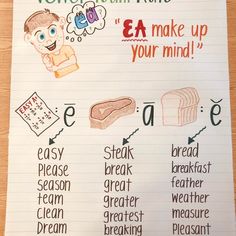 Vowel Team Rule
ea
"EA make up
your mind!"
EASY A
: ē
: ā
: ĕ
easy Steak bread
Please break breakfast
Season great feather
team greater Weather
Clean greatest measure
Dream breaking Pleasant